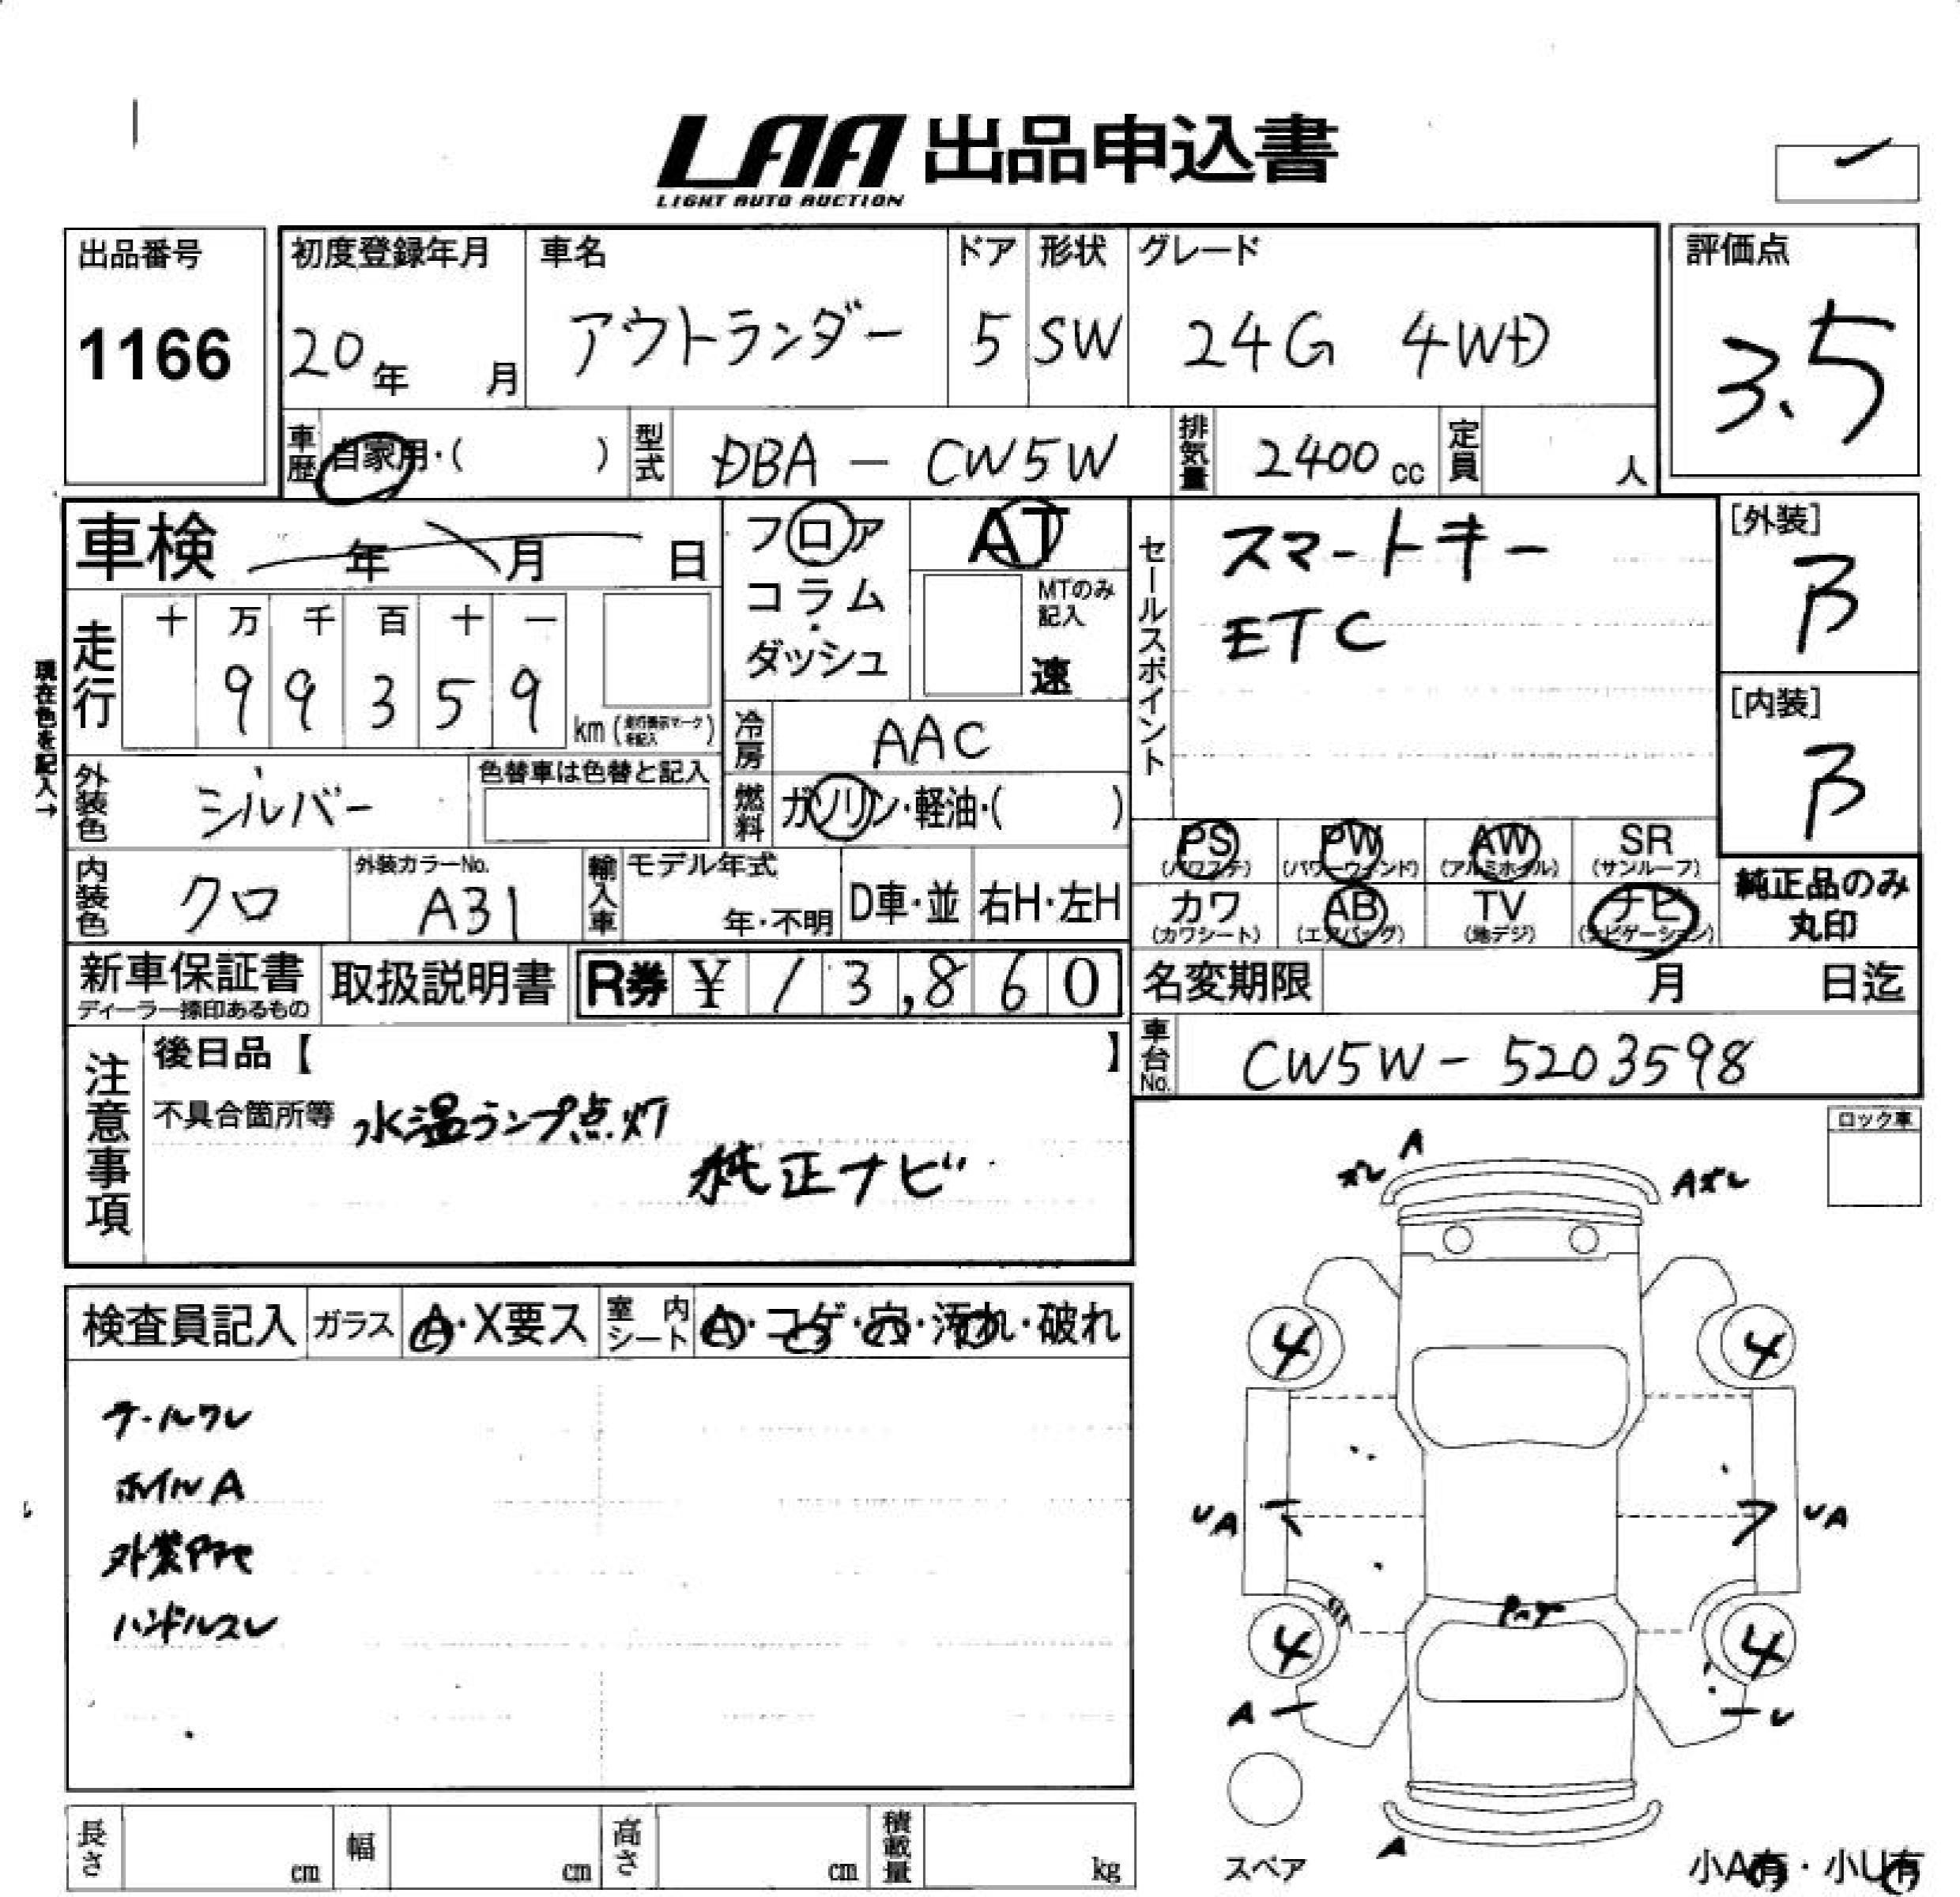 LAA 出品申込書
LIGHT AUTO AUCTION
出品番号
1166
初度登録年月
20年 月
車名
アウトランダー
ドア
5
形状
SW
グレード
24G 4WD
評価点
3.5
車歴
自家用・( )
型式
DBA - CW5W
排気量
2400cc
定員
人
車検 年 月 日
現在色を記入→
走行
十 万 千 百 十 一
9 9 3 5 9
km(走行表示マークを記入)
フロア
コラム
・
ダッシュ
AT
MTのみ
記入
速
冷房
AAC
燃料
ガソリン・軽油・( )
セールスポイント
スマートキー
ETC
[外装]
B
[内装]
B
外装色
シルバー
色替車は色替と記入
内装色
クロ
外装カラーNo.
A31
輸入車
モデル年式
年・不明
D車・並
右H・左H
PS
(パワステ)
PW
(パワーウィンド)
AW
(アルミホイル)
SR
(サンルーフ)
カワ
(カワシート)
AB
(エアバッグ)
TV
(地デジ)
ナビ
(ナビゲーション)
純正品のみ
丸印
新車保証書
ディーラー捺印あるもの
取扱説明書
R券 ¥ 13,860
名変期限 月 日迄
車台No.
CW5W - 5203598
注意事項
後日品【 】
不具合箇所等 水温ランプ点灯
純正ナビ
ロック車
検査員記入
ガラス
A・X要ス
室内シート
A・コゲ・穴・汚れ・破れ
テールワレ
ホイルA
ハンドルスレ
A
A
4
4
UA
UA
4
4
A
U
A
スペア
小A有・小U有
長さ
cm
幅
cm
高さ
cm
積載量
kg